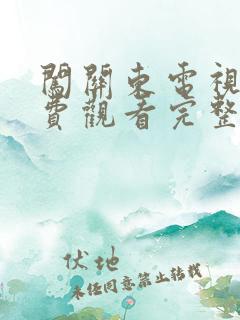 闖關東電視
費觀看完整
伏地
未经同意禁止转载